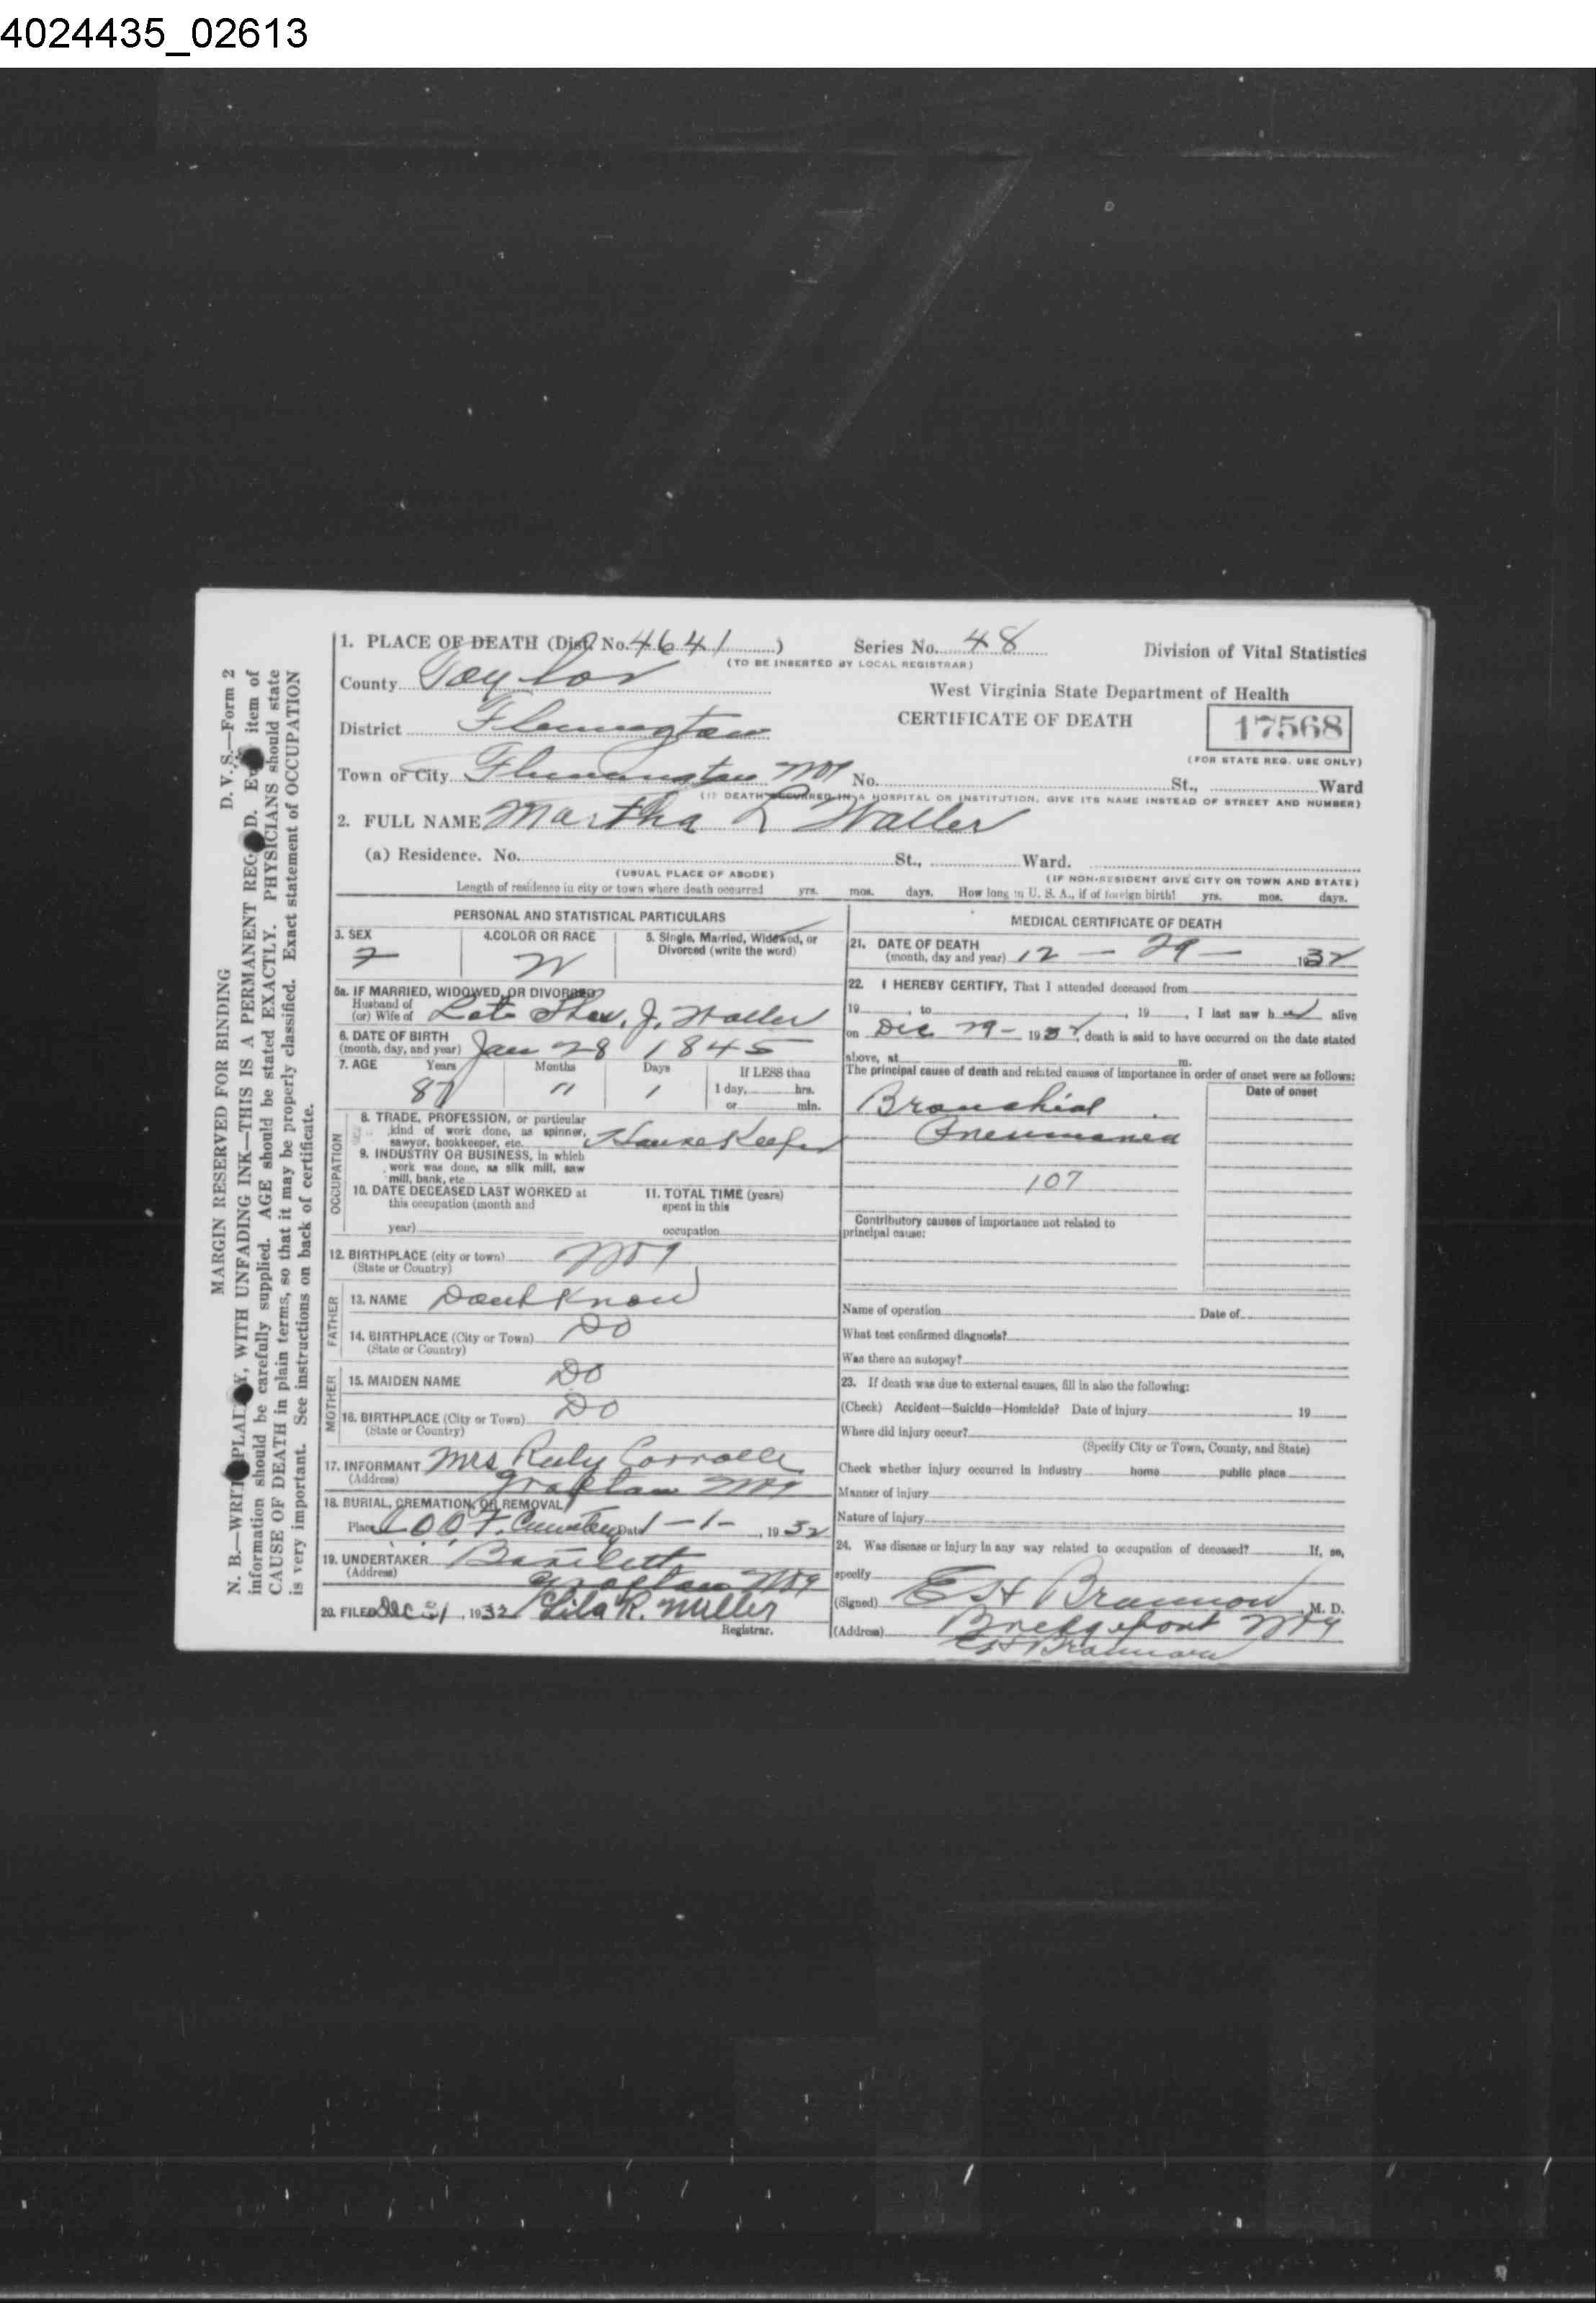 4024435_02613
D. V. S.—Form 2
MARGIN RESERVED FOR BINDING
N. B.—WRITE PLAINLY, WITH UNFADING INK—THIS IS A PERMANENT RECORD. Every item of
information should be carefully supplied. AGE should be stated EXACTLY. PHYSICIANS should state
CAUSE OF DEATH in plain terms, so that it may be properly classified. Exact statement of OCCUPATION
is very important. See instructions on back of certificate.
1. PLACE OF DEATH (Dist. No. 4641) Series No. 48 Division of Vital Statistics
(TO BE INSERTED BY LOCAL REGISTRAR)
County Taylor
West Virginia State Department of Health
District Flemington
CERTIFICATE OF DEATH 17568
(FOR STATE REG. USE ONLY)
Town or City Flemington No. St., Ward
(IF DEATH OCCURRED IN A HOSPITAL OR INSTITUTION, GIVE ITS NAME INSTEAD OF STREET AND NUMBER)
2. FULL NAME Martha L Waller
(a) Residence. No. St., Ward.
(USUAL PLACE OF ABODE) (IF NON-RESIDENT GIVE CITY OR TOWN AND STATE)
Length of residence in city or town where death occurred yrs. mos. days. How long in U. S. A., if of foreign birth? yrs. mos. days.
PERSONAL AND STATISTICAL PARTICULARS
3. SEX 4. COLOR OR RACE 5. Single, Married, Widowed, or
Divorced (write the word)
F W
5a. IF MARRIED, WIDOWED, OR DIVORCED
Husband of
(or) Wife of Late J. Waller
6. DATE OF BIRTH
(month, day, and year) Jan 28 1845
7. AGE Years Months Days If LESS than
87 11 1 1 day, hrs.
or min.
OCCUPATION
8. TRADE, PROFESSION, or particular
kind of work done, as spinner,
sawyer, bookkeeper, etc. House Keeper
9. INDUSTRY OR BUSINESS, in which
work was done, as silk mill, saw
mill, bank, etc.
10. DATE DECEASED LAST WORKED at
this occupation (month and
year)
11. TOTAL TIME (years)
spent in this
occupation
12. BIRTHPLACE (city or town)
(State or Country)
FATHER
13. NAME Dont Know
14. BIRTHPLACE (City or Town) Do
(State or Country)
MOTHER
15. MAIDEN NAME Do
16. BIRTHPLACE (City or Town) Do
(State or Country)
17. INFORMANT Mrs Ruby
(Address) Grafton
18. BURIAL, CREMATION, OR REMOVAL
Place I.O.O.F. Cemetery Date 1-1-, 1932
19. UNDERTAKER Bartlett
(Address) Grafton
20. FILED Dec 31, 1932 Lila R. Miller
Registrar.
MEDICAL CERTIFICATE OF DEATH
21. DATE OF DEATH
(month, day and year) 12 - 29 - 1932
22. I HEREBY CERTIFY, That I attended deceased from
19 , to , 19 , I last saw her alive
on Dec 29 - 1932, death is said to have occurred on the date stated
above, at m.
The principal cause of death and related causes of importance in order of onset were as follows:
Date of onset
Bronchial
Pneumonea
107
Contributory causes of importance not related to
principal cause:
Name of operation Date of
What test confirmed diagnosis?
Was there an autopsy?
23. If death was due to external causes, fill in also the following:
(Check) Accident—Suicide—Homicide? Date of injury 19
Where did injury occur?
(Specify City or Town, County, and State)
Check whether injury occurred in industry home public place
Manner of injury
Nature of injury
24. Was disease or injury in any way related to occupation of deceased? If, so,
specify
(Signed) E H Brannon M. D.
(Address) Bridgeport
E H Brannon